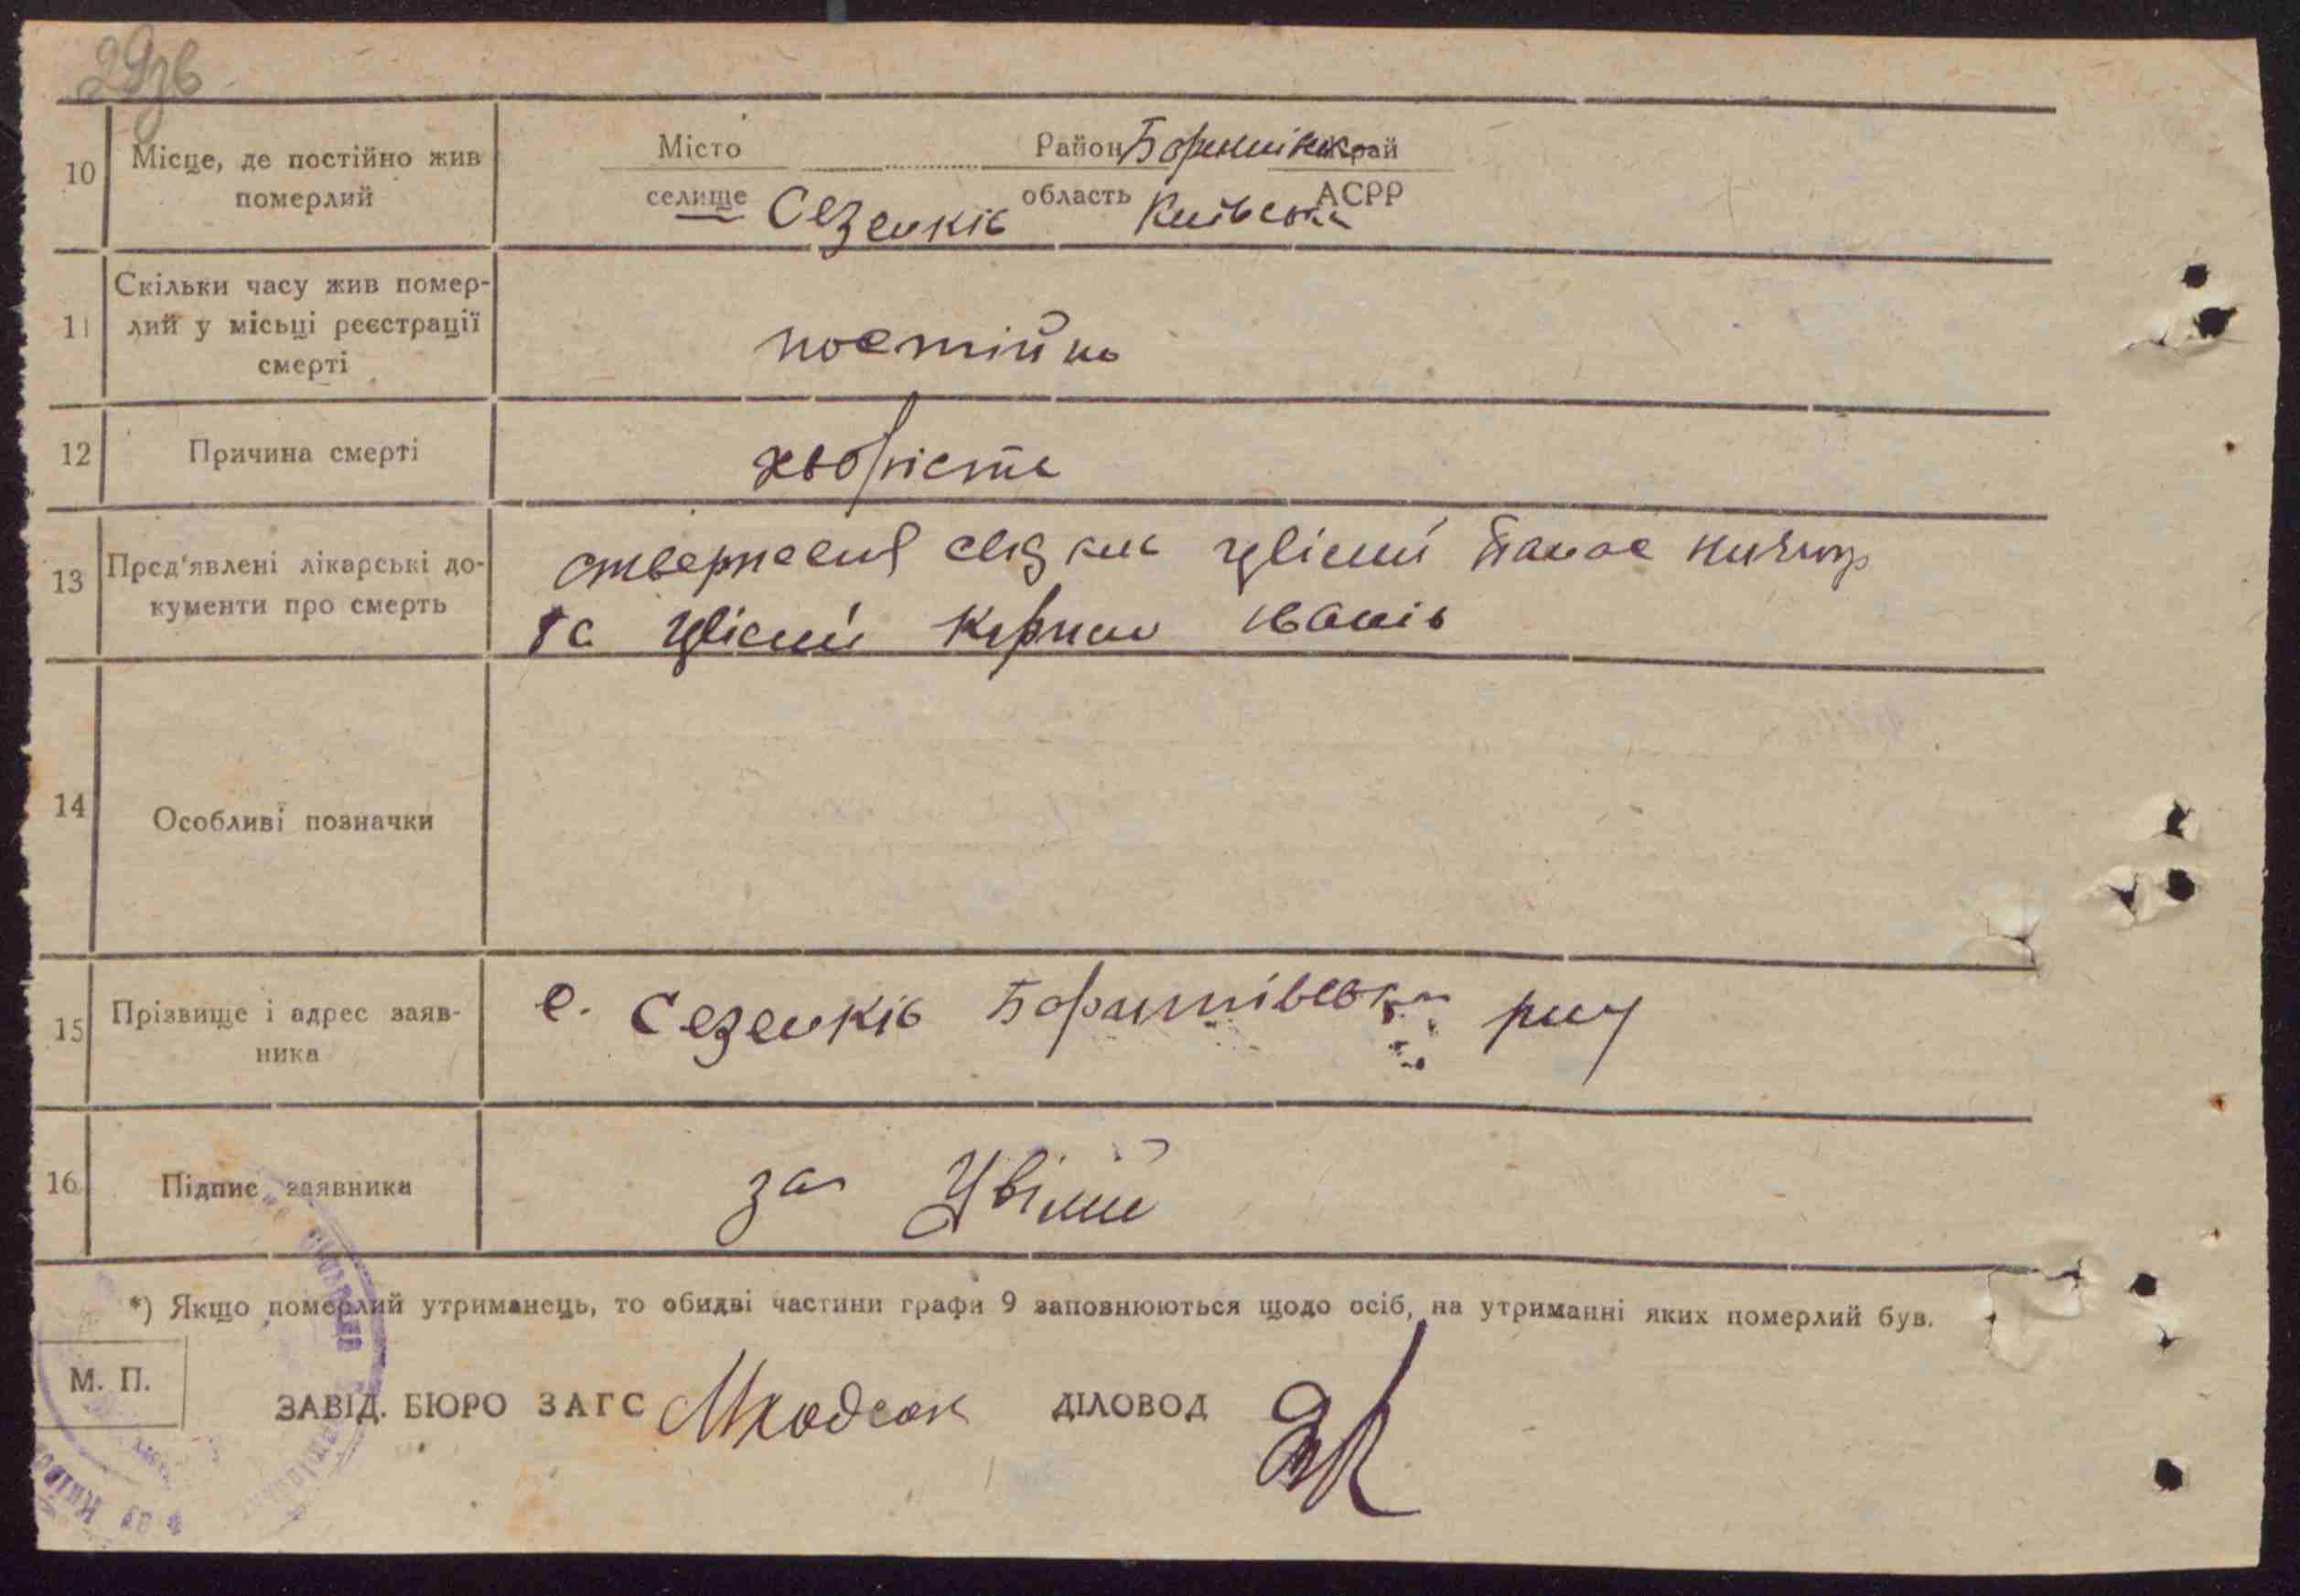 29зв
10 Місце, де постійно жив померлий
Місто Район Край
селище Сезенків область Київська АСРР
11 Скільки часу жив помер-
лий у місьці реєстрації
смерті
постійно
12 Причина смерті
хворість
13 Пред'явлені лікарські до-
кументи про смерть
Цвісий Панас
та Цвісий Іванів
14 Особливі позначки
15 Прізвище і адрес заяв-
ника
с. Сезенків Баришівська
16 Підпис заявника
за
*) Якщо померлий утриманець, то обидві частини графи 9 заповнюються щодо осіб, на утриманні яких померлий був.
М. П.
ЗАВІД. БЮРО ЗАГС ДІЛОВОД